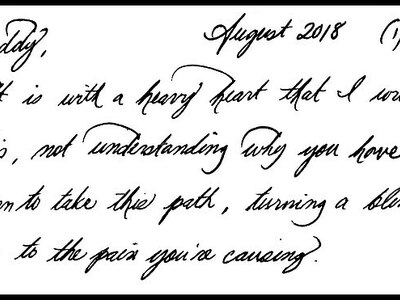 August 2018 (1
ddy,
It is with a heavy heart that I wri
s, not understanding why you have
n to take this path, turning a blin
to the pain you're causing.